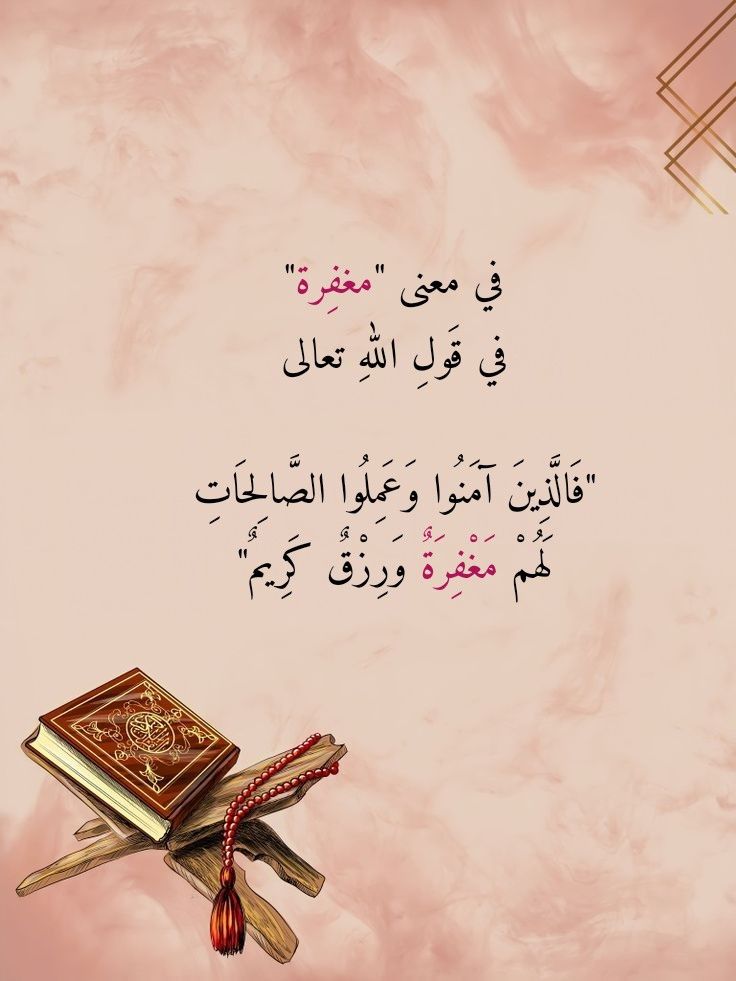 في معنى "مغفِرة"
في قَولِ اللهِ تعالى
"فَالَّذِينَ آمَنُوا وَعَمِلُوا الصَّالِحَاتِ
لَهُمْ مَغْفِرَةٌ وَرِزْقٌ كَرِيمٌ"